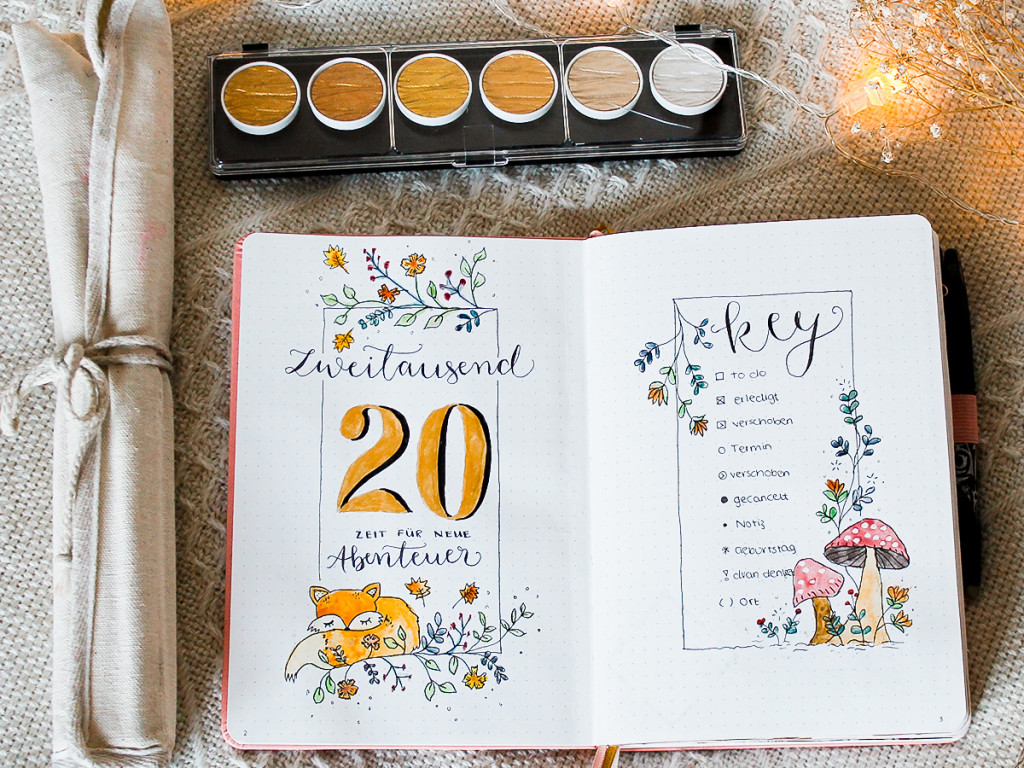 zweitausend
20
ZEIT FÜR NEUE
Abenteuer
2
key
to do
erledigt
verschoben
Termin
verschoben
gecancelt
Notiz
Geburtstag
dran denken
( ) Ort
3